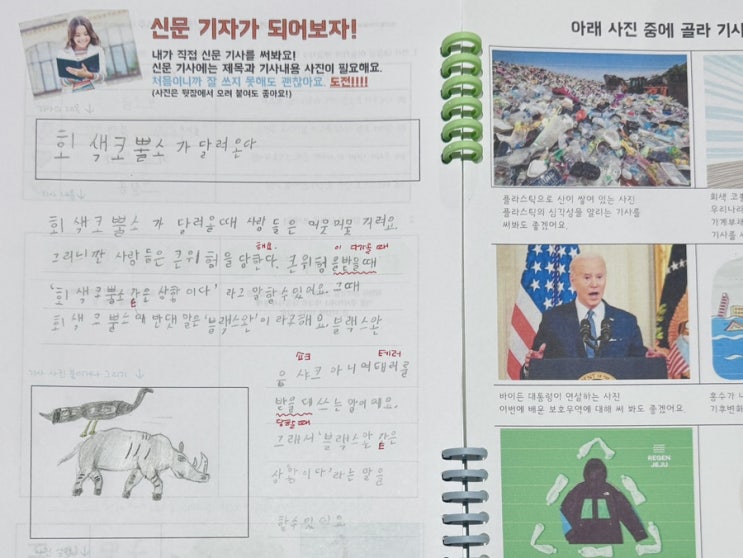 신문 기자가 되어보자!
내가 직접 신문 기사를 써봐요!
신문 기사에는 제목과 기사내용 사진이 필요해요.
처음이니까 잘 쓰지 못해도 괜찮아요. 도전!!!!
(사진은 뒷장에서 오려 붙여도 좋아요!)
회색코뿔소가 달려온다
회색코뿔소가 달려올때 사람들은 머뭇머뭇 거려요.
그러니깐 사람들은 큰위험을 당한다. 큰위험을받을때
해요.
이 다가올 때
'회색코뿔소가은 상황이다' 라고 말할수있어요. 그때
회색코뿔소에 반댓 말은 '블랙스완'이 라고해요. 블랙스완
은 샤크 아니며태러를
쇼크
테러
받을 때 쓰는말이예요.
당할 때
그래서 '블랙스완 가은
상황이다'라는 말을
할수있어요
기사 사진 붙이거나 그리기
아래 사진 중에 골라 기사
플라스틱으로 산이 쌓여 있는 사진
플라스틱의 심각성을 알리는 기사를
써봐도 좋겠어요.
회색 코뿔
우리나라
가계부채
기사를 써
바이든 대통령이 연설하는 사진
이번에 배운 보호무역에 대해 써 봐도 좋겠어요.
홍수가 나
기후변화
REGEN
JEJU